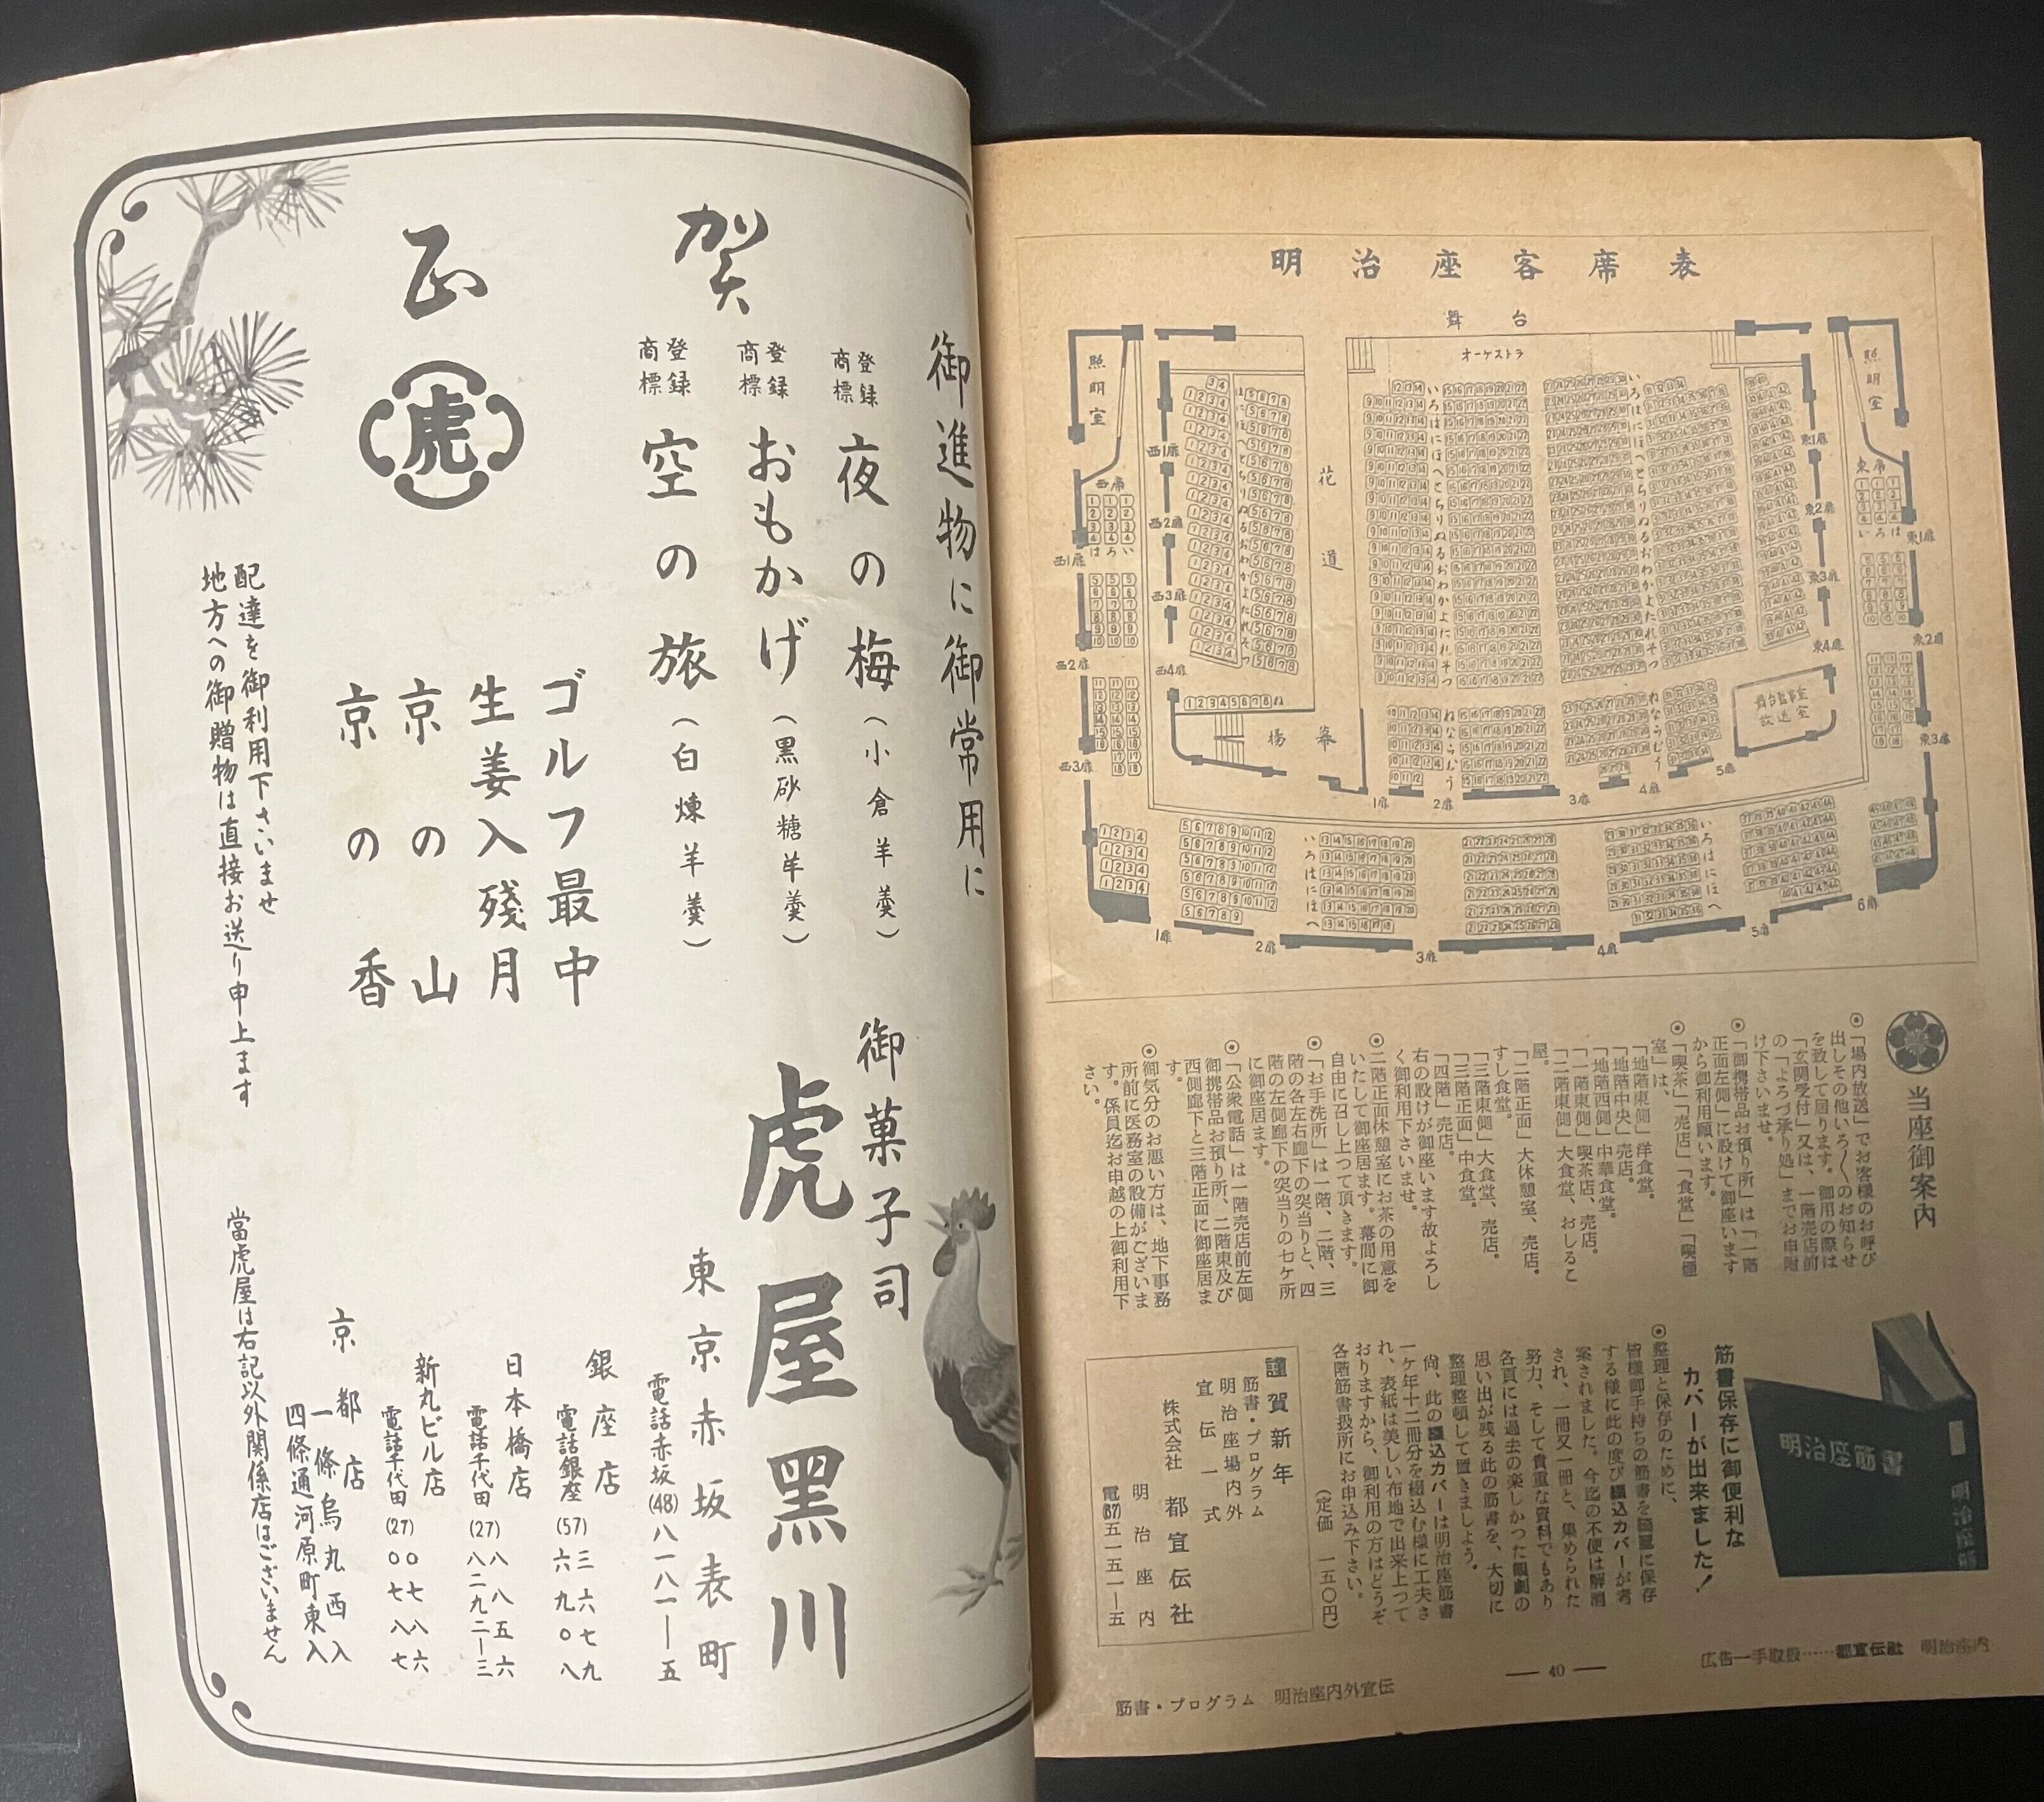 明治座客席表
舞台
オーケストラ
花道
揚幕
照明室
照明室
西席
東席
西1扉
西2扉
西3扉
西4扉
西1扉
西2扉
西3扉
東1扉
東2扉
東3扉
東4扉
東1扉
東2扉
東3扉
1扉
2扉
3扉
4扉
5扉
1扉
2扉
3扉
4扉
5扉
6扉
当座御案内
◉「場内放送」でお客様のお呼び
出しその他いろ〳〵のお知らせ
を致して居ります。御用の際は
「玄関受付」又は、一階売店前
の「よろづ承り処」までお申附
け下さいませ。
◉「御携帯品お預り所」は「一階
正面左側」に設けて御座います
から御利用願います。
◉「喫茶」「売店」「食堂」「喫煙
室」は、
「地階東側」洋食堂。
「地階中央」売店。
「地階西側」中華食堂。
「一階東側」喫茶店、売店。
「二階東側」大食堂、おしるこ
屋。
「二階正面」大休憩室、売店。
すし食堂。
「三階東側」大食堂、売店。
「三階正面」中食堂。
「四階」売店。
右の設けが御座います故よろし
く御利用下さいませ。
◉二階正面休憩室にお茶の用意を
いたして御座居ます。幕間に御
自由に召し上つて頂きます。
◉「お手洗所」は一階、二階、三
階の各左右廊下の突当りと、四
階の左側廊下の突当りの七ケ所
に御座居ます。
◉「公衆電話」は一階売店前左側
御携帯品お預り所、二階東及び
西側廊下と三階正面に御座居ま
す。
◉御気分のお悪い方は、地下事務
所前に医務室の設備がございま
す。係員迄お申越の上御利用下
さい。
明治座筋書
筋書保存に御便利な
カバーが出来ました！
◉整理と保存のために、
皆様御手持ちの筋書を綺麗に保存
する様に此の度び綴込カバーが考
案されました。今迄の不便は解消
され、一冊又一冊と、集められた
努力、そして貴重な資料でもあり
各頁には過去の楽しかつた観劇の
思い出が残る此の筋書を、大切に
整理整頓して置きましよう。
尚、此の綴込カバーは明治座筋書
一ケ年十二冊分を綴込む様に工夫さ
れ、表紙は美しい布地で出来上つて
おりますから、御利用の方はどうぞ
各階筋書扱所にお申込み下さい。
（定価　一五〇円）
謹賀新年
筋書・プログラム
明治座場内外
宣伝一式
株式会社　都宣伝社
明治座内
電(67)五一五一—五
広告一手取扱……都宣伝社　明治座内
— 40 —
筋書・プログラム　明治座内外宣伝
賀正
御進物に御常用に
登録商標　夜の梅（小倉羊羹）
登録商標　おもかげ（黒砂糖羊羹）
登録商標　空の旅（白煉羊羹）
ゴルフ最中
生姜入残月
京の山
京の香
虎
配達を御利用下さいませ
地方への御贈物は直接お送り申上ます
御菓子司
虎屋黒川
東京赤坂表町
電話赤坂(48)八一八一—五
銀座店
電話銀座(57)三六七九
六九〇八
日本橋店
電話千代田(27)八八五六
八二九二—三
新丸ビル店
電話千代田(27)〇七八六
〇七八七
京都店
一條烏丸西入
四條通河原町東入
當虎屋は右記以外関係店はございません